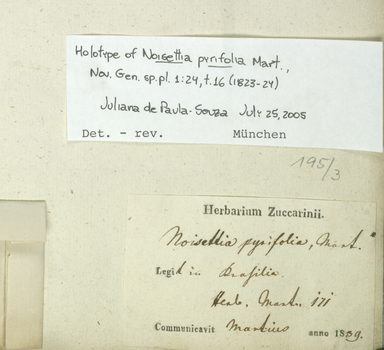 Holotype of Noisettia pyrifolia Mart.,
Nov. Gen. sp. pl. 1:24, t.16 (1823-24)
Juliana de Paula-Souza July 25, 2005
Det. - rev. München
195/3
Herbarium Zuccarinii.
Noisettia pyrifolia, Mart.
Legit in Brasilia.
Herb. Mart.
Communicavit Martius anno 1839.